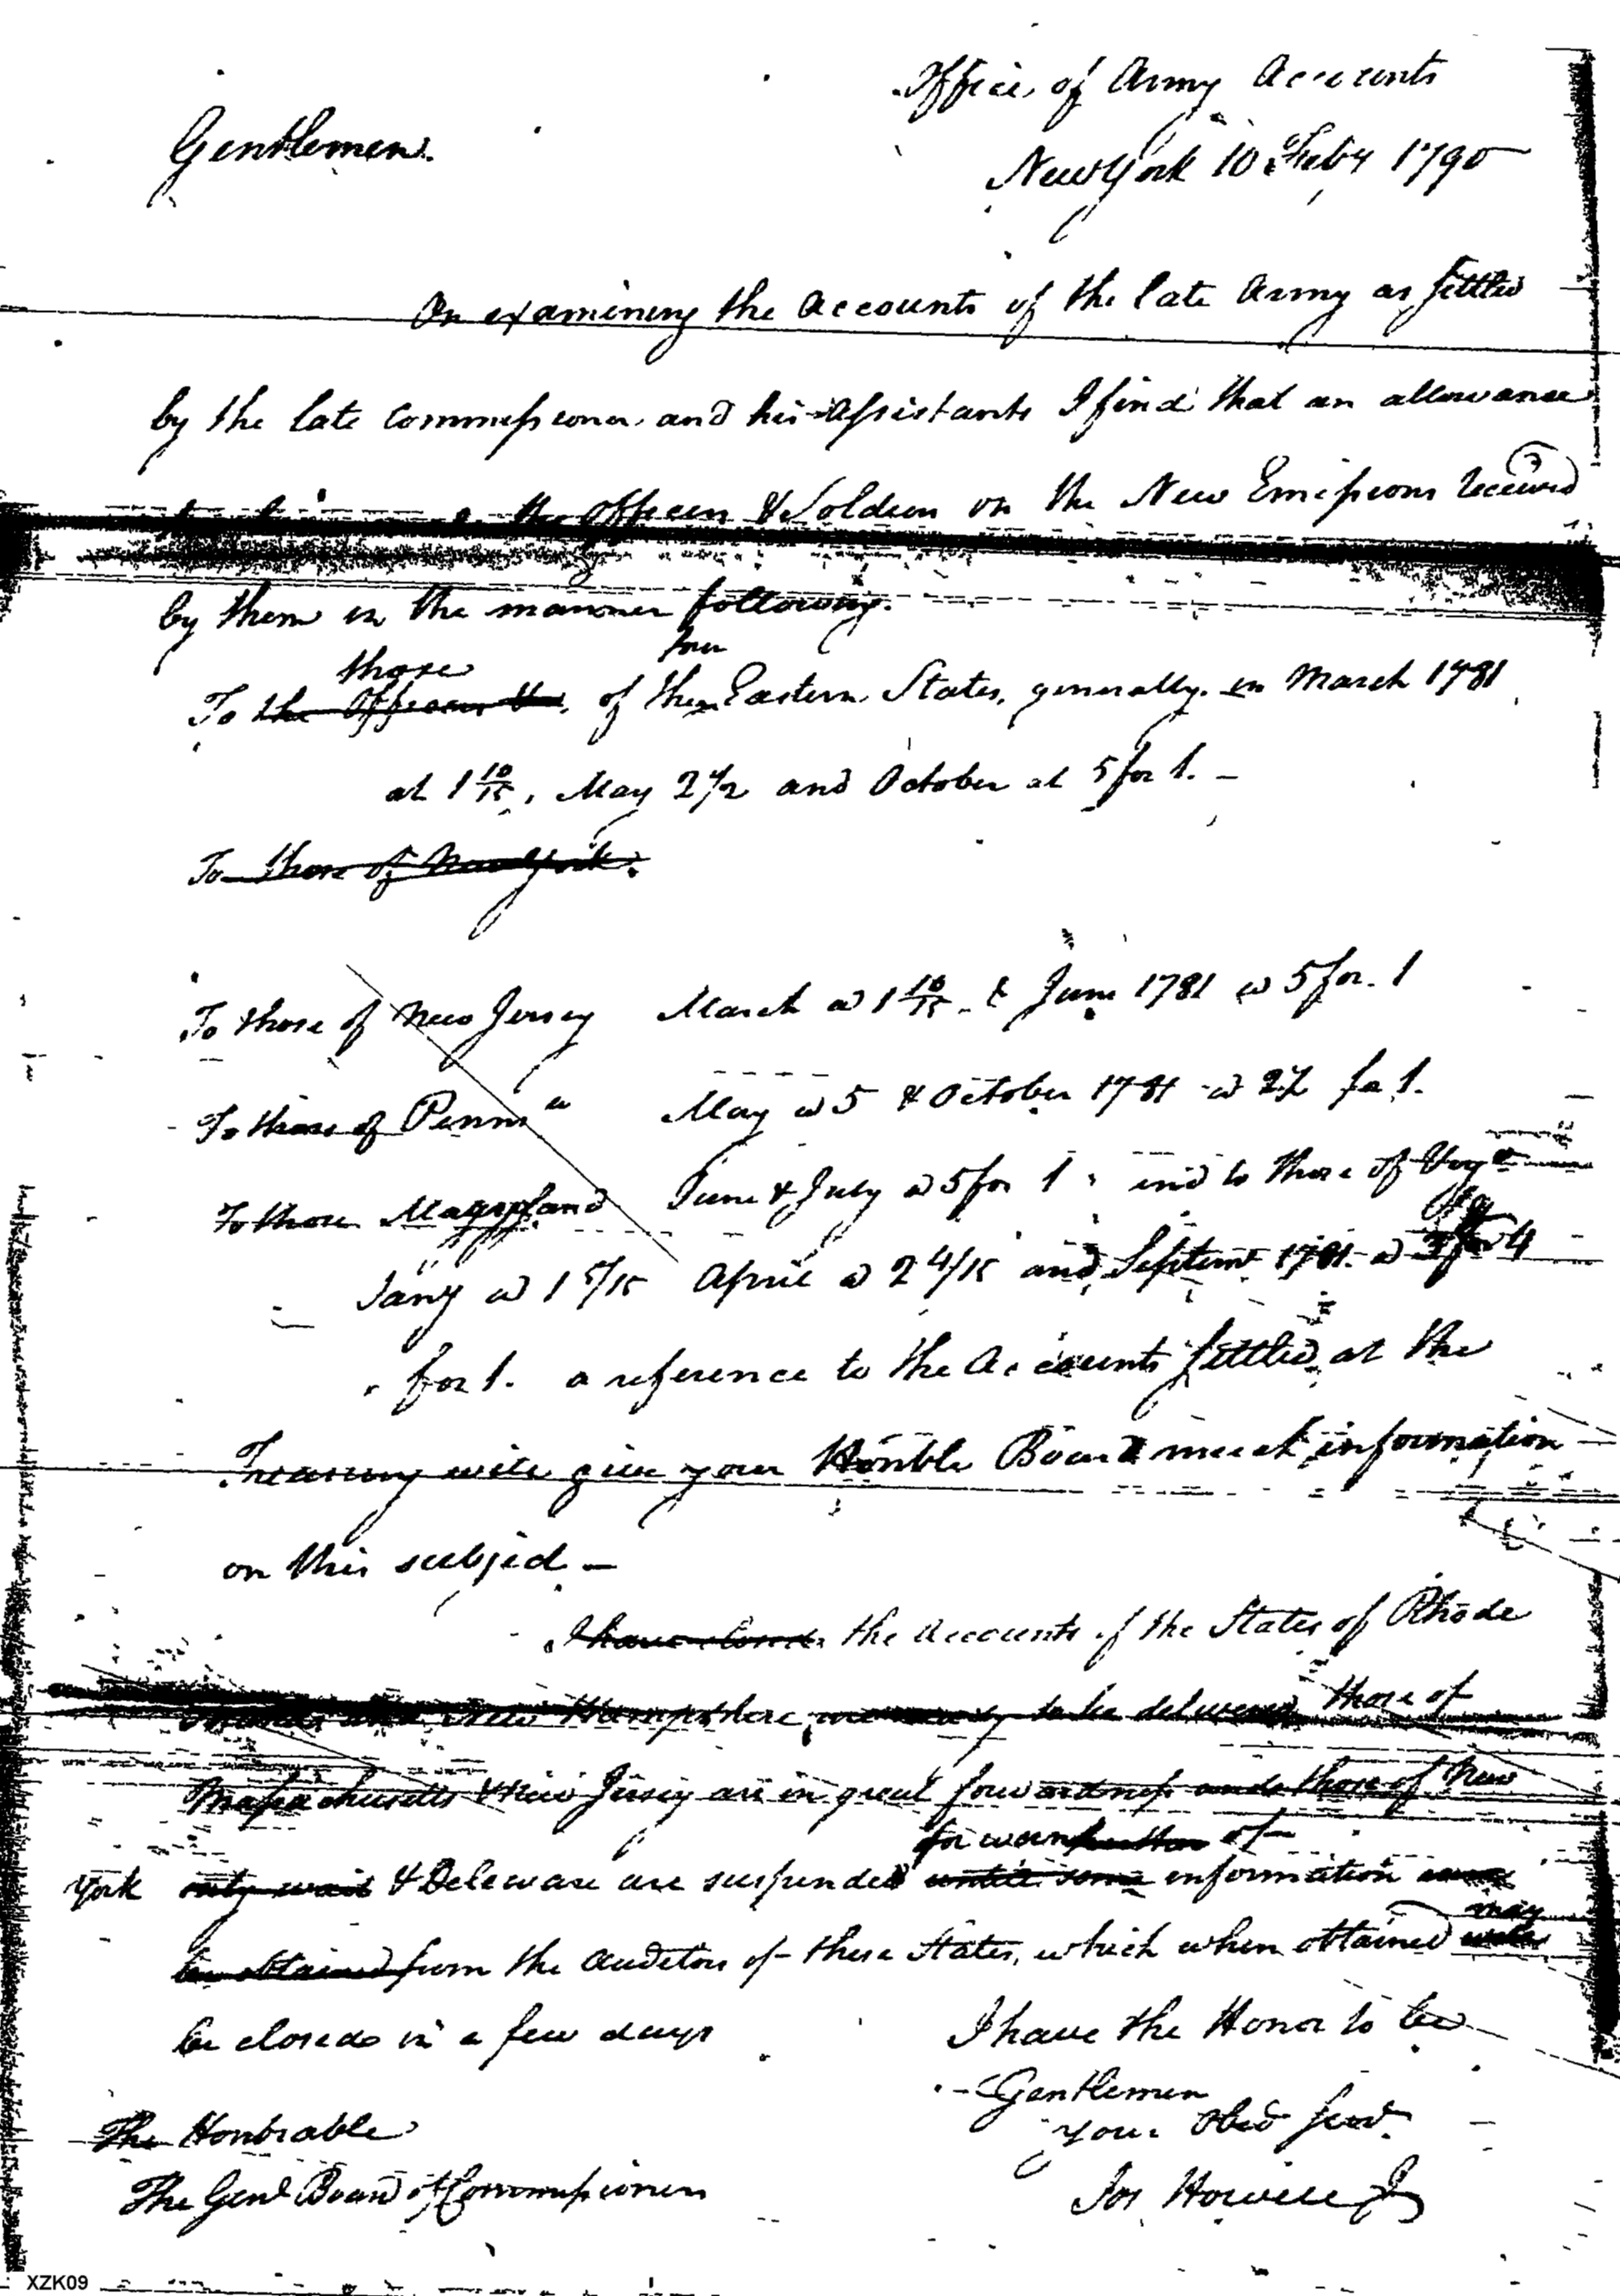 Office of Army Accounts
Gentlemen.
New York 10 Feby 1790
On examining the Accounts of the late Army as settled
by the late Commissioner and his Assistants I find that an allowance
the officers & Soldiers on the New Emissions received
by them in the manner following.
those four
To the Officers of the Eastern States, generally in March 1781
at 1 10/15, May 2 1/2 and October at 5 for 1. —
To those of New York.
To those of New Jersey March @ 1 10/15 & June 1781 @ 5 for 1
To those of Pennsa May @ 5 & October 1781 @ 2 1/2 for 1.
To those Maryland June & July @ 5 for 1 and to those of Virga
Jany @ 1 5/15 April @ 2 4/15 and Septemr 1781 @ 4
for 1. a reference to the Accounts settled at the
Treasury will give your Honble Board much information
on this subject —
I have closed the Accounts of the States of Rhode
New Hampshire, to be delivered those of
Massachusetts & New Jersey are in great forwardness and those of New
for want of
York only wait & Deleware are suspended until some information
may
be obtained from the Auditors of these States, which when obtained
be closed in a few days
I have the Honor to be
Gentlemen
your Obed Servt.
The Honorable
The Genl Board of Commissioners
Jos Howell Jr
XZK09